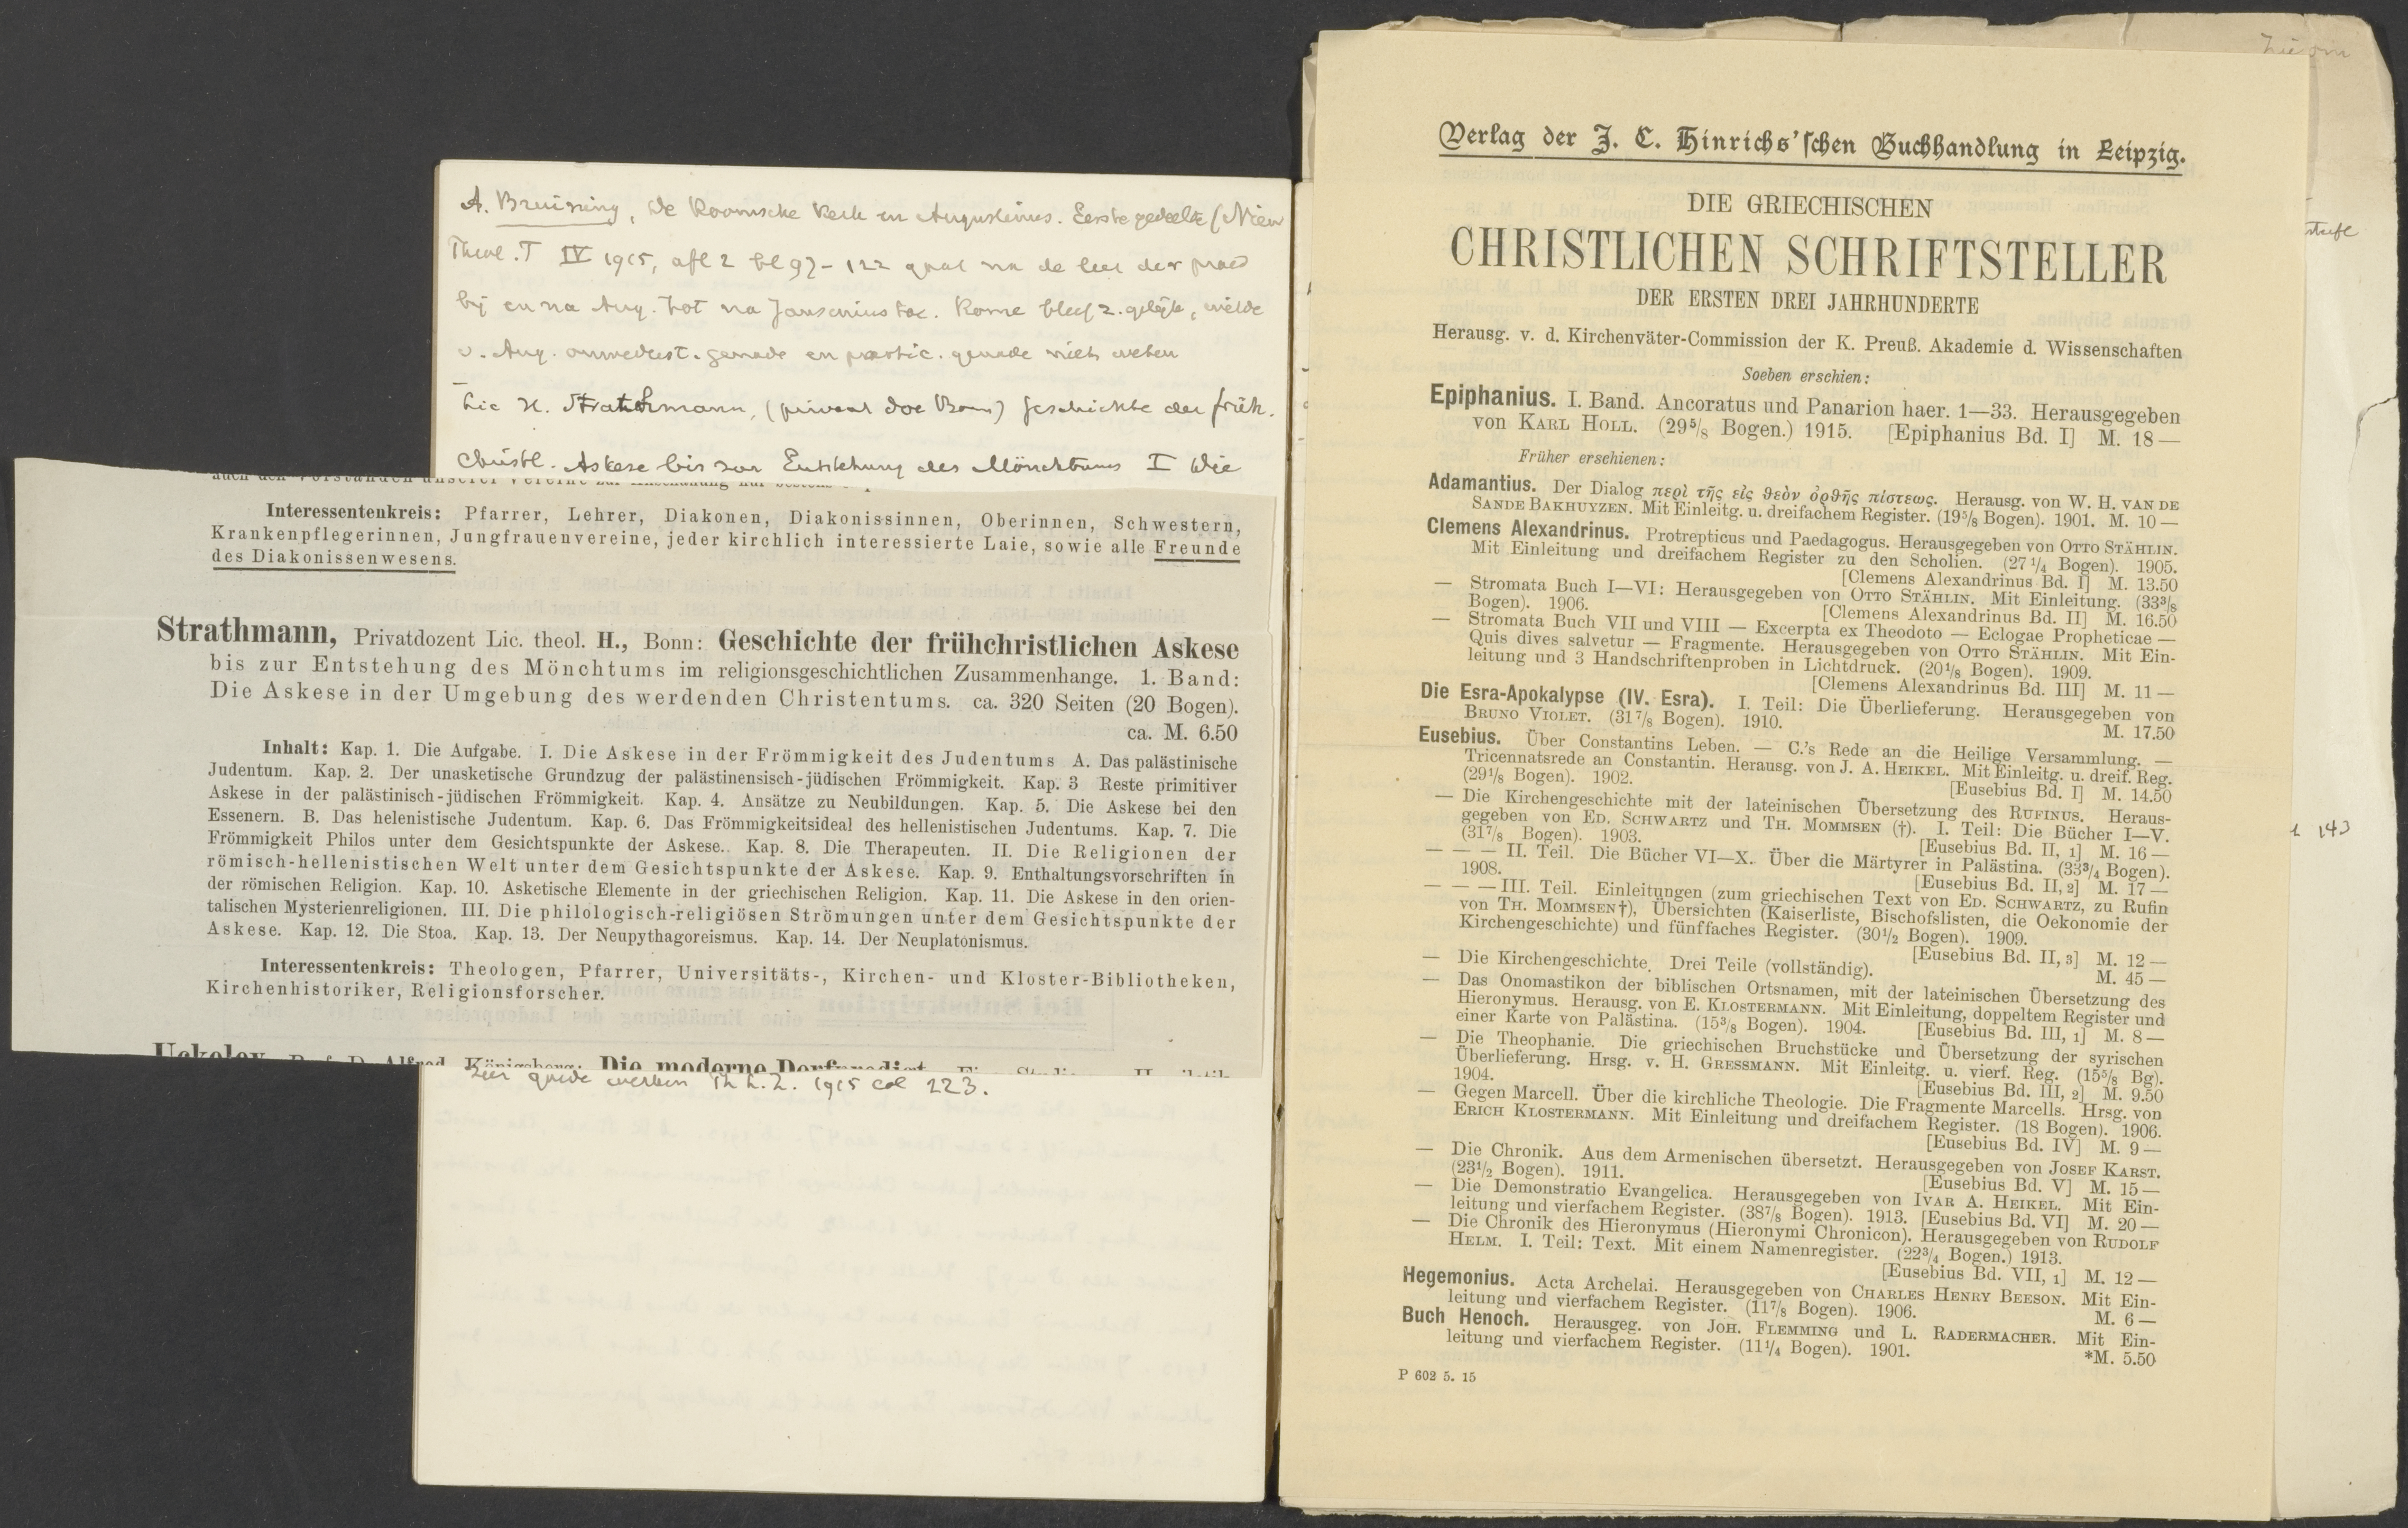 A. Bruining, de Roomsche Kerk en Augustinus. Eerste gedeelte (Nieuw
Theol. T IV 1915, afl 2 bl 97-122 gaat na de leer der praed
bij en na Aug. tot na Jansenius toe. Rome bleef z. gelijk, wilde
v. Aug. onwederst. genade en partic. genade niets weten
Lic H. Strathmann, (privaat doc Bonn) Geschichte der früh.
christl. Askese bis zur Entstehung des Mönchtums I Die
Interessentenkreis: Pfarrer, Lehrer, Diakonen, Diakonissinnen, Oberinnen, Schwestern,
Krankenpflegerinnen, Jungfrauenvereine, jeder kirchlich interessierte Laie, sowie alle Freunde
des Diakonissenwesens.
Strathmann, Privatdozent Lic. theol. H., Bonn: Geschichte der frühchristlichen Askese
bis zur Entstehung des Mönchtums im religionsgeschichtlichen Zusammenhange. 1. Band:
Die Askese in der Umgebung des werdenden Christentums. ca. 320 Seiten (20 Bogen).
ca. M. 6.50
Inhalt: Kap. 1. Die Aufgabe. I. Die Askese in der Frömmigkeit des Judentums A. Das palästinische
Judentum. Kap. 2. Der unasketische Grundzug der palästinensisch-jüdischen Frömmigkeit. Kap. 3 Reste primitiver
Askese in der palästinisch-jüdischen Frömmigkeit. Kap. 4. Ansätze zu Neubildungen. Kap. 5. Die Askese bei den
Essenern. B. Das helenistische Judentum. Kap. 6. Das Frömmigkeitsideal des hellenistischen Judentums. Kap. 7. Die
Frömmigkeit Philos unter dem Gesichtspunkte der Askese. Kap. 8. Die Therapeuten. II. Die Religionen der
römisch-hellenistischen Welt unter dem Gesichtspunkte der Askese. Kap. 9. Enthaltungsvorschriften in
der römischen Religion. Kap. 10. Asketische Elemente in der griechischen Religion. Kap. 11. Die Askese in den orien-
talischen Mysterienreligionen. III. Die philologisch-religiösen Strömungen unter dem Gesichtspunkte der
Askese. Kap. 12. Die Stoa. Kap. 13. Der Neupythagoreismus. Kap. 14. Der Neuplatonismus.
Interessentenkreis: Theologen, Pfarrer, Universitäts-, Kirchen- und Kloster-Bibliotheken,
Kirchenhistoriker, Religionsforscher.
Uckeley, Prof. D. Alfred, Königsberg: Die moderne Dorfpredigt.
Zeer goede werken Th L. Z. 1915 col 223.
Verlag der J. C. Hinrichs'schen Buchhandlung in Leipzig.
DIE GRIECHISCHEN
CHRISTLICHEN SCHRIFTSTELLER
DER ERSTEN DREI JAHRHUNDERTE
Herausg. v. d. Kirchenväter-Commission der K. Preuß. Akademie d. Wissenschaften
Soeben erschien:
Epiphanius. I. Band. Ancoratus und Panarion haer. 1—33. Herausgegeben
von KARL HOLL. (29⁵/₈ Bogen.) 1915. [Epiphanius Bd. I] M. 18—
Früher erschienen:
Adamantius. Der Dialog περὶ τῆς εἰς θεὸν ὀρθῆς πίστεως. Herausg. von W. H. VAN DE
SANDE BAKHUYZEN. Mit Einleitg. u. dreifachem Register. (19⁵/₈ Bogen). 1901. M. 10—
Clemens Alexandrinus. Protrepticus und Paedagogus. Herausgegeben von OTTO STÄHLIN.
Mit Einleitung und dreifachem Register zu den Scholien. (27¹/₄ Bogen). 1905.
[Clemens Alexandrinus Bd. I] M. 13.50
— Stromata Buch I—VI: Herausgegeben von OTTO STÄHLIN. Mit Einleitung. (33³/₈
Bogen). 1906. [Clemens Alexandrinus Bd. II] M. 16.50
— Stromata Buch VII und VIII — Excerpta ex Theodoto — Eclogae Propheticae —
Quis dives salvetur — Fragmente. Herausgegeben von OTTO STÄHLIN. Mit Ein-
leitung und 3 Handschriftenproben in Lichtdruck. (20¹/₈ Bogen). 1909.
[Clemens Alexandrinus Bd. III] M. 11—
Die Esra-Apokalypse (IV. Esra). I. Teil: Die Überlieferung. Herausgegeben von
BRUNO VIOLET. (31⁷/₈ Bogen). 1910. M. 17.50
Eusebius. Über Constantins Leben. — C.'s Rede an die Heilige Versammlung. —
Tricennatsrede an Constantin. Herausg. von J. A. HEIKEL. Mit Einleitg. u. dreif. Reg.
(29¹/₈ Bogen). 1902. [Eusebius Bd. I] M. 14.50
— Die Kirchengeschichte mit der lateinischen Übersetzung des RUFINUS. Heraus-
gegeben von ED. SCHWARTZ und TH. MOMMSEN (†). I. Teil: Die Bücher I—V.
(31⁷/₈ Bogen). 1903. [Eusebius Bd. II, 1] M. 16—
— — — II. Teil. Die Bücher VI—X. Über die Märtyrer in Palästina. (33³/₄ Bogen).
1908. [Eusebius Bd. II, 2] M. 17—
— — — III. Teil. Einleitungen (zum griechischen Text von ED. SCHWARTZ, zu Rufin
von TH. MOMMSEN†), Übersichten (Kaiserliste, Bischofslisten, die Oekonomie der
Kirchengeschichte) und fünffaches Register. (30¹/₂ Bogen). 1909.
[Eusebius Bd. II, 3] M. 12—
— Die Kirchengeschichte. Drei Teile (vollständig). M. 45—
— Das Onomastikon der biblischen Ortsnamen, mit der lateinischen Übersetzung des
Hieronymus. Herausg. von E. KLOSTERMANN. Mit Einleitung, doppeltem Register und
einer Karte von Palästina. (15³/₈ Bogen). 1904. [Eusebius Bd. III, 1] M. 8—
— Die Theophanie. Die griechischen Bruchstücke und Übersetzung der syrischen
Überlieferung. Hrsg. v. H. GRESSMANN. Mit Einleitg. u. vierf. Reg. (15⁵/₈ Bg).
1904. [Eusebius Bd. III, 2] M. 9.50
— Gegen Marcell. Über die kirchliche Theologie. Die Fragmente Marcells. Hrsg. von
ERICH KLOSTERMANN. Mit Einleitung und dreifachem Register. (18 Bogen). 1906.
[Eusebius Bd. IV] M. 9—
— Die Chronik. Aus dem Armenischen übersetzt. Herausgegeben von JOSEF KARST.
(23¹/₂ Bogen). 1911. [Eusebius Bd. V] M. 15—
— Die Demonstratio Evangelica. Herausgegeben von IVAR A. HEIKEL. Mit Ein-
leitung und vierfachem Register. (38⁷/₈ Bogen). 1913. [Eusebius Bd. VI] M. 20—
— Die Chronik des Hieronymus (Hieronymi Chronicon). Herausgegeben von RUDOLF
HELM. I. Teil: Text. Mit einem Namenregister. (22³/₄ Bogen.) 1913.
[Eusebius Bd. VII, 1] M. 12—
Hegemonius. Acta Archelai. Herausgegeben von CHARLES HENRY BEESON. Mit Ein-
leitung und vierfachem Register. (11⁷/₈ Bogen). 1906. M. 6—
Buch Henoch. Herausgeg. von JOH. FLEMMING und L. RADERMACHER. Mit Ein-
leitung und vierfachem Register. (11¹/₄ Bogen). 1901. *M. 5.50
P 602 5. 15
143